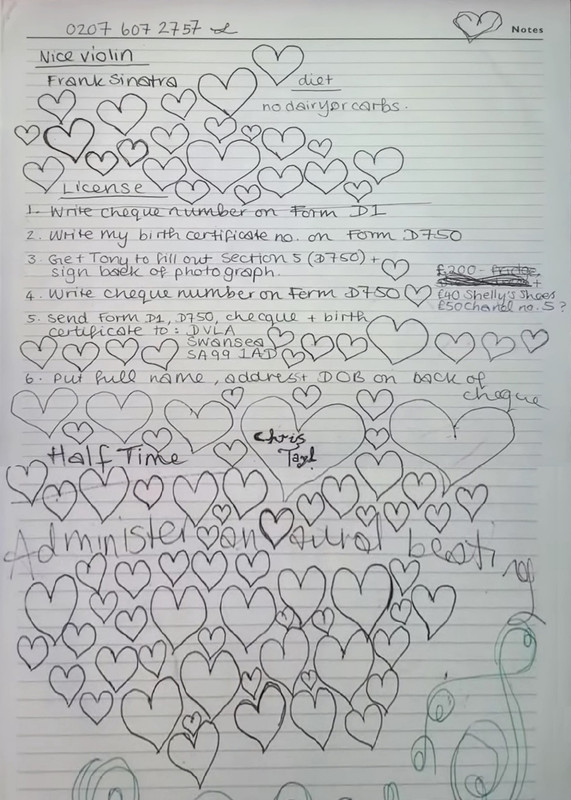 0207 607 2757
Notes
Nice violin
Frank Sinatra
diet
no dairy or carbs.
License
1. Write cheque number on Form D1
2. Write my birth certificate no. on Form D750
3. Get Tony to fill out section 5 (D750) +
sign back of photograph.
£200 - fridge
4. Write cheque number on Form D750
£40 Shelly's Shoes
£50 Chanel no. 5?
5. Send Form D1, D750, checque + birth
certificate to: DVLA
Swansea
SA99 1AD
6. Put full name, address + DOB on back of
cheque
Chris
Half Time
Administer an aural beating